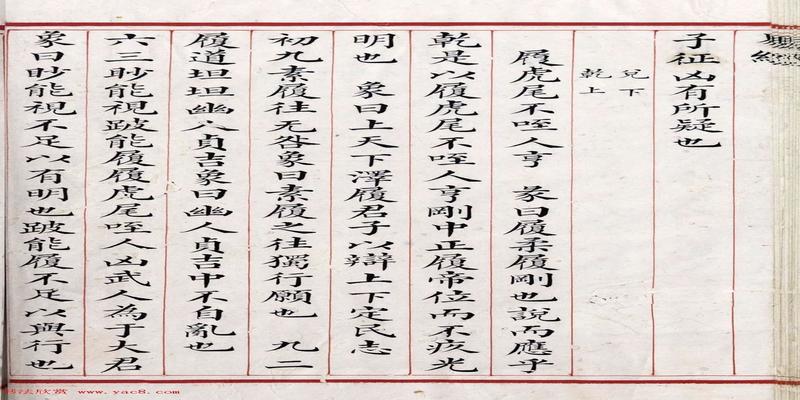 子征凶有所疑也
兌下
乾上
履虎尾不咥人亨 彖曰履柔履剛也說而應乎
乾是以履虎尾不咥人亨剛中正履帝位而不疚光
明也 象曰上天下澤履君子以辯上下定民志
初九素履往无咎象曰素履之往獨行願也 九二
履道坦坦幽人貞吉象曰幽人貞吉中不自亂也
六三眇能視跛能履履虎尾咥人凶武人為于大君
象曰眇能視不足以有明也跛能履不足以與行也
法欣赏 www.yac8.com